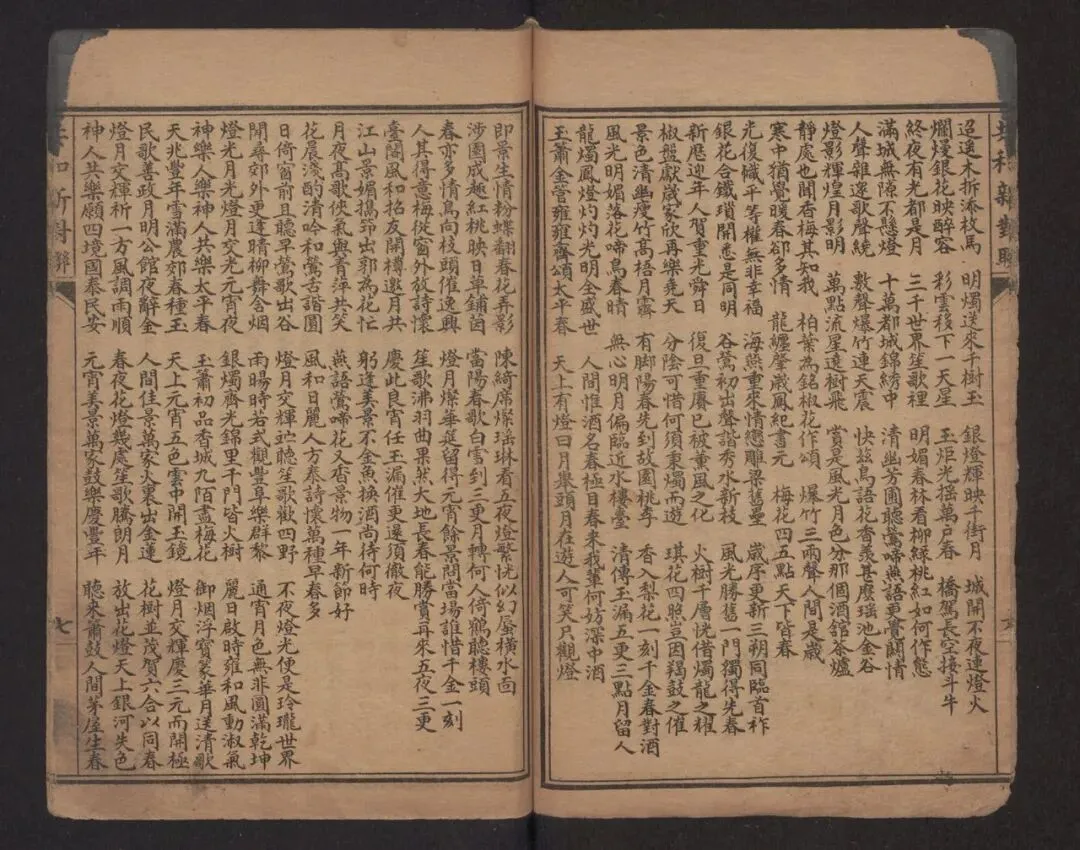 共和新對聯
迢遞木折添枝馬　明燭送來千樹玉　銀燈輝映千街月　城開不夜連燈火
爛熳銀花映醉容　彩雲移下一天星　玉炬光搖萬戶春　橋駕長空接斗牛
終夜有光都是月　三千世界笙歌裡　明媚春林看柳綠桃紅如何作態
滿城無隙不懸燈　十萬都城錦綉中　清幽芳圃聽鶯啼燕語更費關情
人聲雜遝歌聲繞　數聲爆竹連天震　快茲鳥語花香羨甚麼瑶池金谷
燈影輝煌月影明　萬點流星遶樹飛　賞是風光月色分那個酒舘茶爐
靜處也聞香梅其知我　柏葉為銘椒花作頌　爆竹三兩聲人間是歲
寒中猶覺暖春卻多情　龍纏肇歲鳳紀書元　梅花四五點天下皆春
光復幟平等權無非幸福　海燕重來情戀雕梁舊壘　歲序更新三朔同臨首祚
銀花合鐵瑣開悉是同明　谷鶯初出聲諧秀水新枝　風光勝舊一門獨得先春
新曆迎年人賀重光舜日　復旦重賡已被薰風之化　火樹千層恍借燭龍之耀
椒盤獻歲家欣再樂堯天　分陰可惜何須秉燭而遊　琪花四照豈因羯鼓之催
景色清幽瘦竹高梧月霽　有脚陽春先到故園桃李　香入梨花一刻千金春對酒
風光明媚落花啼鳥春晴　無心明月偏臨近水樓臺　清傳玉漏五更三點月留人
龍燭鳳燈灼灼光明全盛世　人間惟酒名春極日春來我輩何妨深中酒
玉簫金管雍雍齊頌太平春　天上有燈曰月舉頭月在遊人可笑只觀燈
即景生情粉蝶翻春花弄影　陳綺席燦瑶琳看五夜燈繁恍似幻蜃橫水面
涉園成趣紅桃映日草鋪茵　當陽春歌白雪到三更月轉何人倚鶴聽樓頭
春亦多情鳥向枝頭催逸興　燈月燦華筵留得元宵餘景問當場誰惜千金一刻
人其得意梅從窗外放詩懷　笙歌沸羽曲果然大地長春能勝賞再來五夜三更
臺閣風和招友開樽邀月共　慶此良宵任玉漏催更還須徹夜
江山景媚攜笻出郭為花忙　躬逢美景不金魚換酒尚待何時
月夜高歌俠氣與青萍共笑　燕語鶯啼花又香景物一年新節好
花晨淺酌清吟和鶯舌諧圓　風和日麗人方泰詩懷萬種早春多
日倚窗前且聽早鶯歌出谷　燈月交輝竚聽笙歌歡四野　不夜燈光便是玲瓏世界
閒尋郊外更逢晴柳舞含烟　雨暘時若式觀豐阜樂群黎　通宵月色無非圓滿乾坤
燈光月光燈月交光元宵夜　銀燭齊光錦里千門皆火樹　麗日啟時雍和風動淑氣
神樂人樂神人共樂太平春　玉簫初品香城九陌盡梅花　御烟浮寶篆華月送清歌
天兆豐年雪滿農郊春種玉　天上元宵五色雲中開玉鏡　燈月交輝慶三元而開極
民歌善政月明公館夜辭金　人間佳景萬家火裏出金蓮　花樹並茂賀六合以同春
燈月交輝祈一方風調雨順　春夜花燈幾處笙歌騰朗月　放出花燈天上銀河失色
神人共樂願四境國泰民安　元宵美景萬家鼓樂慶豐年　聽來簫鼓人間茅屋生春
共和新對聯
七